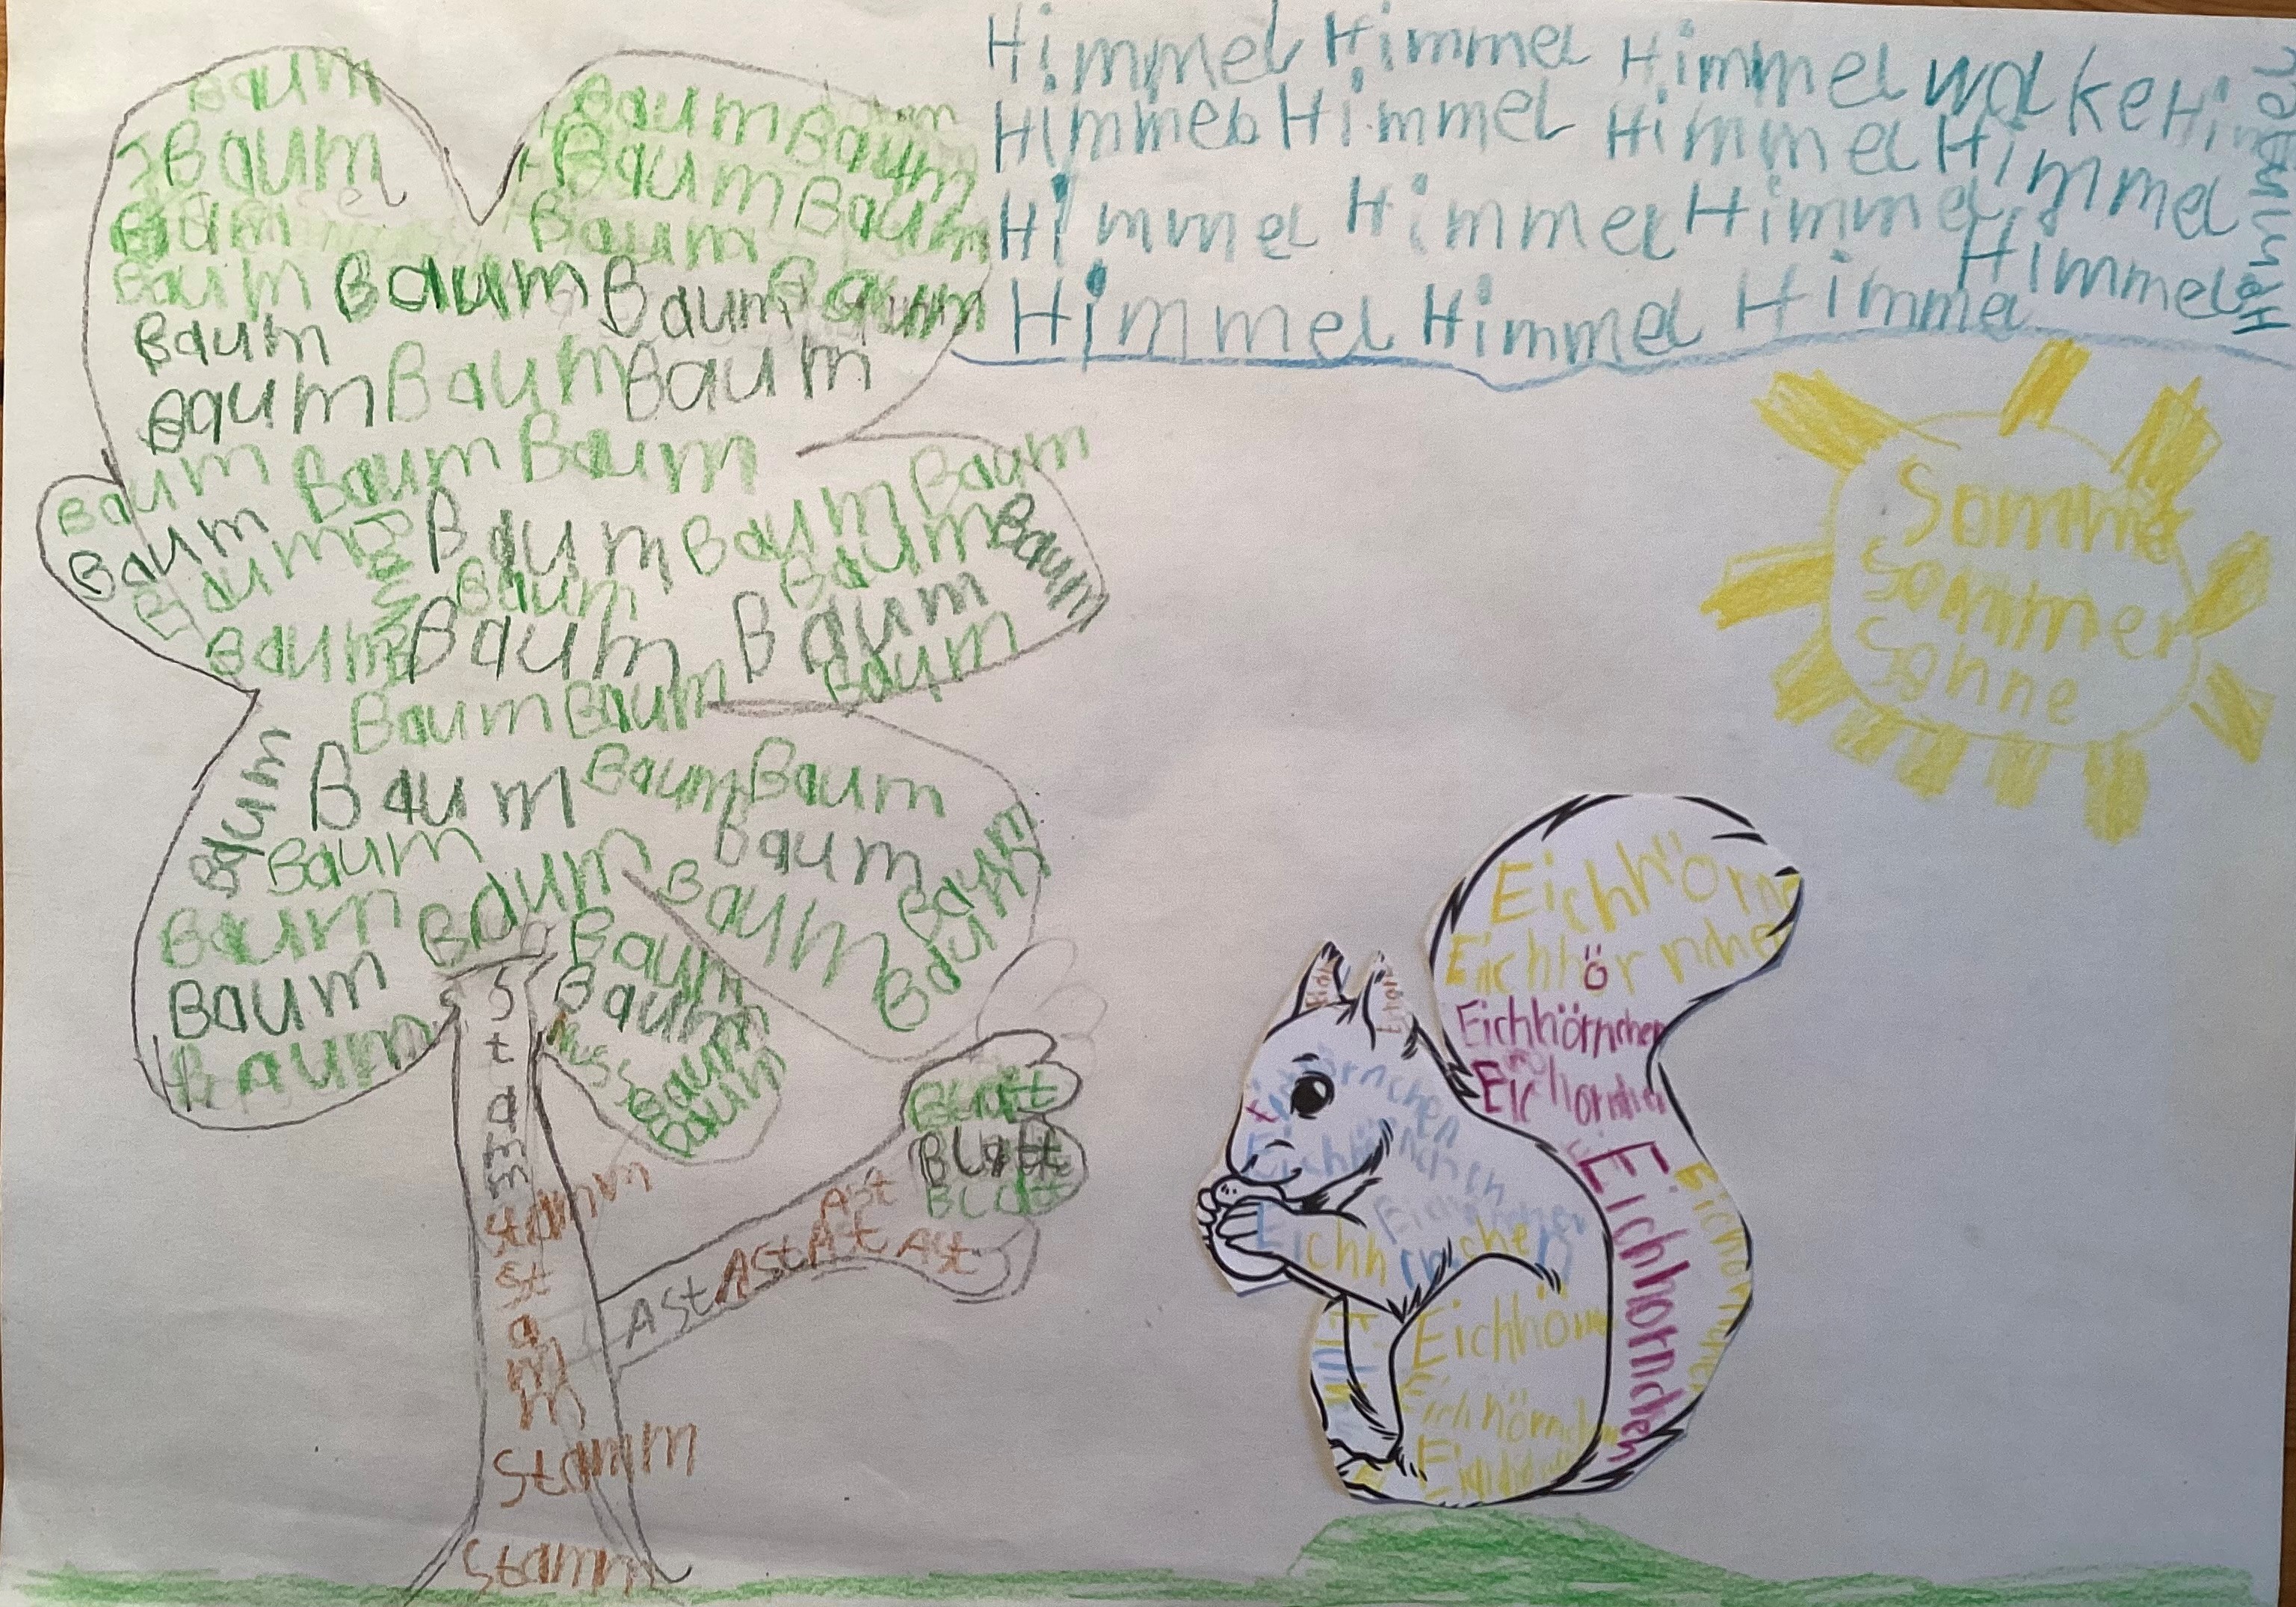 Baum
Baum
Baum
Baum Baum
Baum Baum
Baum
Baum Baum Baum
Baum
Baum Baum Baum
Baum Baum Baum
Baum Baum Baum
Baum Baum Baum Baum
Baum Baum Baum
Baum Baum Baum
Baum Baum Baum
Baum Baum Baum
Baum Baum Baum
Baum Baum Baum
Baum Baum Baum
Baum Baum
Baum
Baum
Baum
Nuss
Baum
Baum
Stamm
Stamm
Stamm
Stamm
Stamm
Ast Ast At Ast
Ast
Blatt
Blatt
Blatt
Himmel Himmel Himmel wolke
Himmel Himmel Himmel Himmel
Himmel Himmel Himmel Himmel
Himmel Himmel Himmel
Himmel
Somme
Sommer
Sonne
Eichhörn
Eichhörnchen
Eichhörnchen
Eichornchen
Eichhornchen
Eichhörnchen
Eichhörnchen
Eichhörnchen
Eichhörnchen
Eichhörn
Eichhörnchen